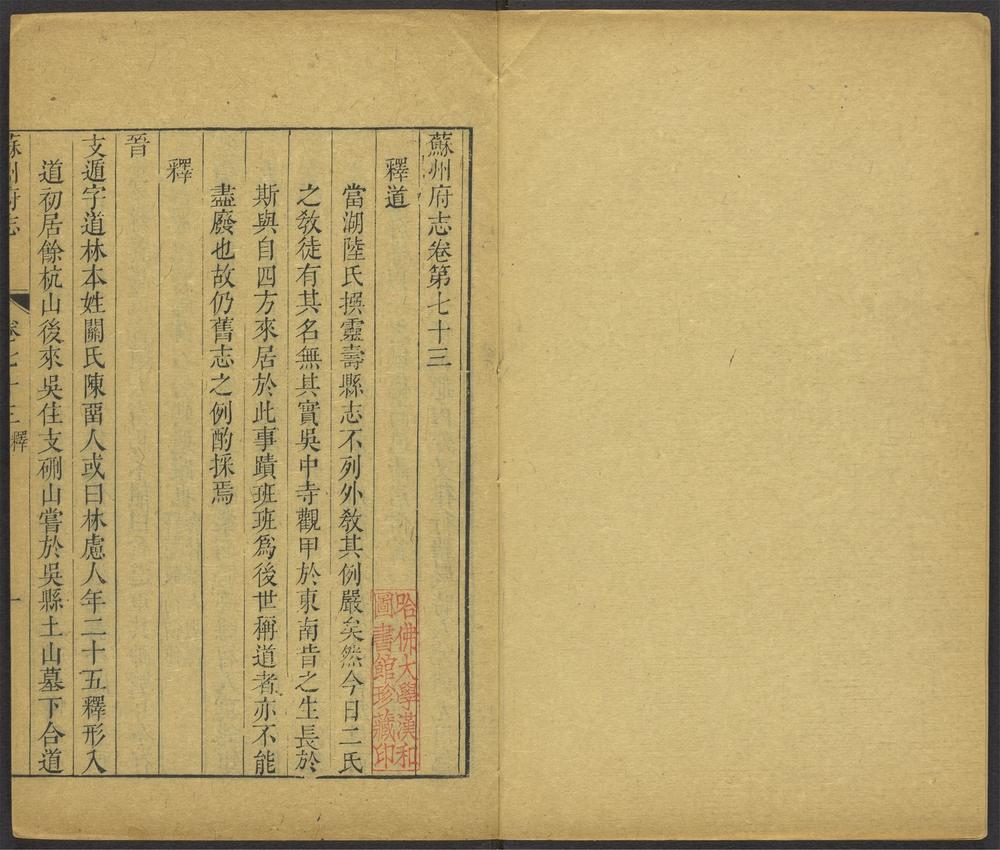 蘇州府志卷第七十三
釋道
當湖陸氏撰靈壽縣志不列外敎其例嚴矣然今日二氏
之敎徒有其名無其實吳中寺觀甲於東南昔之生長於
斯與自四方來居於此事蹟班班爲後世稱道者亦不能
盡廢也故仍舊志之例酌採焉
釋
晉
支遁字道林本姓關氏陳畱人或曰林慮人年二十五釋形入
道初居餘杭山後來吳住支硎山嘗於吳縣土山墓下合道
蘇州府志 卷七十三 釋 一
哈佛大學漢和
圖書館珍藏印